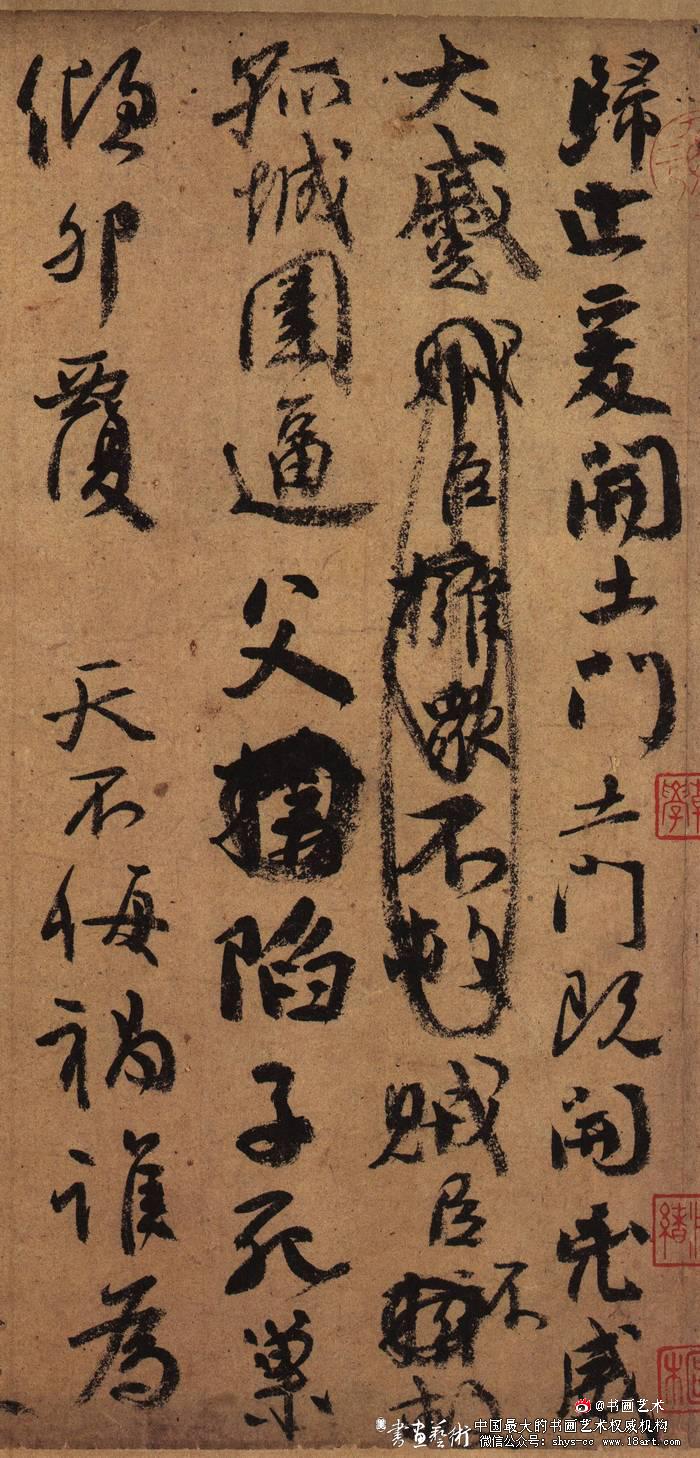 歸止爰開土門土門既開凶威
大蹙賊臣擁衆不救賊臣不救
孤城圍逼父陷子死巢
傾卵覆天不悔禍誰為
@书画艺术
書畫藝術
中国最大的书画艺术权威机构
微信公众号：shys-cc www.18art.com